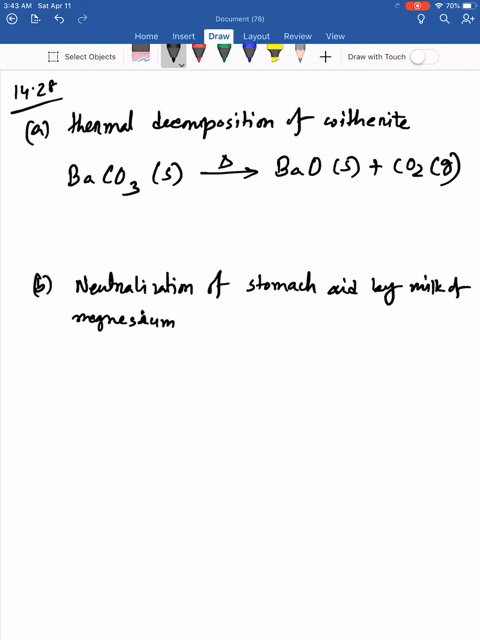 3:43 AM Sat Apr 11
70%
Document (78)
Home Insert Draw Layout Review View
Select Objects
Draw with Touch
14.28
(a) thermal decomposition of witherite
BaCO3 (s) Δ→ BaO (s) + CO2 (g)
(b) Neutralization of stomach acid by milk of
magnesium